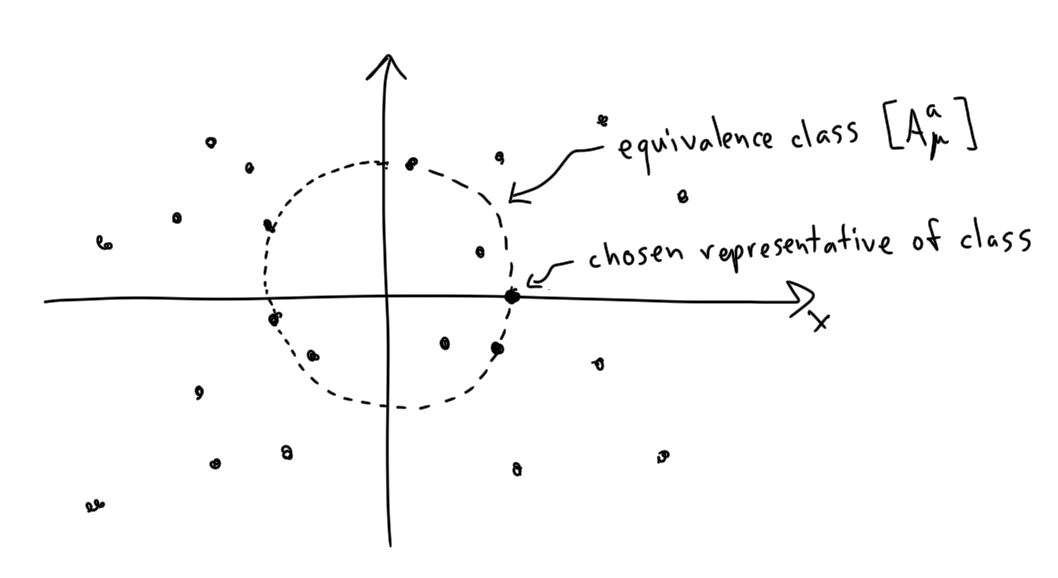 equivalence class [A^a_μ]
chosen representative of class
x